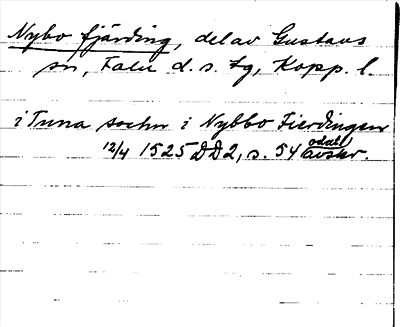 Nybo fjärding, del av Gustavs
sn, Falu d. s. tg, Kopp. l.
i Tuna sochn i Nybbo Fierdingen
12/4 1525 DD2, s. 54 odat. avskr.